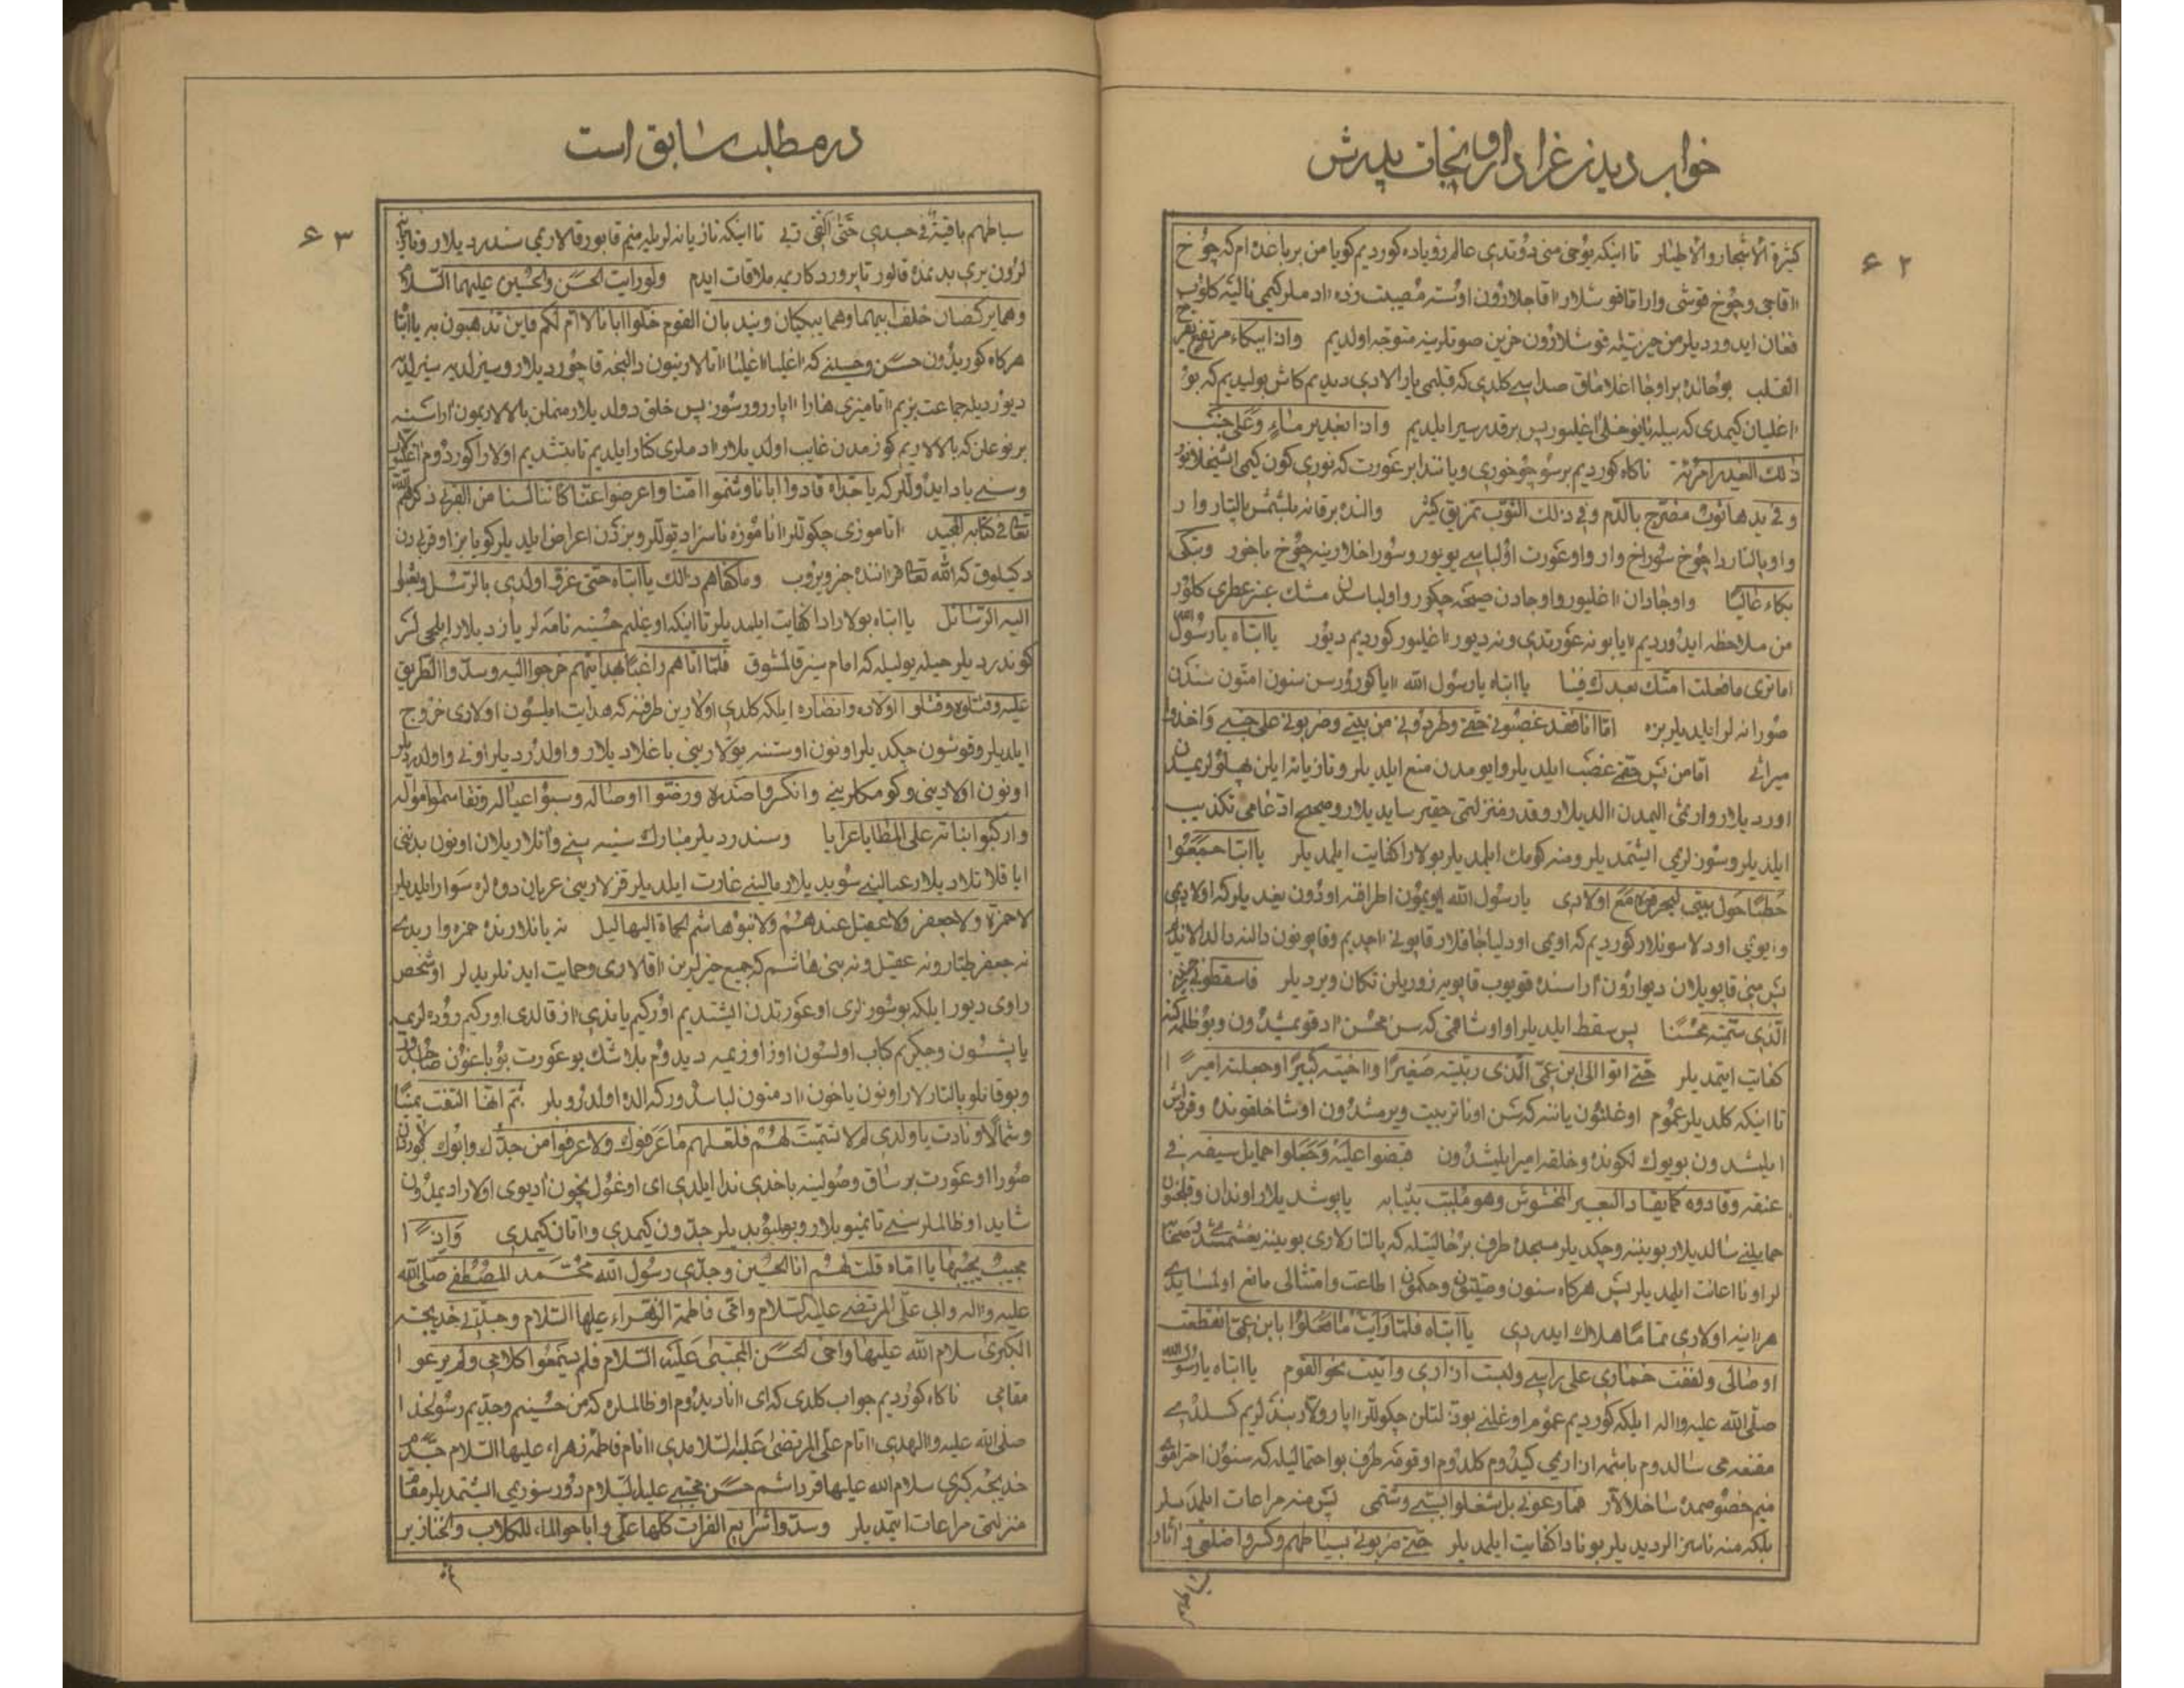 خواب دیدن عزادار و نجات پدرش
۶۲
کثیرة الاشجار والاطیار تا اینکه یوخی منی دوتدی عالم رؤیاده کوردیم کویا من بر باغده ام که چوخ
اقاجی و چوخ قوشی وار اما قوشلار اقاجلارون اوسته مصیبت زده ادملر کیمی نالیه کلوب
فغان ایدوردیلر من حیرتیله قوشلارون حزین صوتلرینه متوجه اولدیم واذا ببکاء مرتفع یقرح
القلب بو حالده بر اوجا اغلاماق صداسی کلدی که قلبمی یارالادی دیدیم کاش بولیدیم که بو
اغلیان کیمدی که بیله یانیخلی اغلیور پس بر قدر سیر ایلدیم واذا بغدیر ماء وعلی جنب
ذلك الغدیر امرئة ناکاه کوردیم بر سو چوخوری و یاننداا بر عورت که نوری کون کیمی ایشیخلانور
وفی یدها ثوب مضرج بالدم وفی ذلك الثوب تمزیق کثیر والنده بر قانه بلشمش پالتار وار
و او پالتاردا چوخ سوراخ وار و او عورت او لباسی یویور و سوراخلارینه چوخ باخور وتبکی
بکاء عالیا و اوجادان اغلیور و اوجادن صیحه چکور و اولباسدن مشك عنبر عطری کلور
من ملاحظه ایدوردیم یا بو نه عورتدی و نه دیور اغلیور کوردیم دیور یا ابتاه یا رسول الله
اما تری ما فعلت امتك بعدك فینا یا ابتاه یا رسول الله ایا کورورسن سنون امتون سندن
صورا نه لر ایلدیلر بزه اما انا فقد غصبونی حقی وطردونی من بیتی وضربونی علی جنبی واخذوا
میراثی اما من پس حقمی غصب ایلدیلر و ایومدن منع ایلدیلر و تازیانه ایلن پهلولریمدن
اوردیلار و ارثمی الیمدن الدیلار و قدر و منزلتمی حقیر سایدیلار و صحیح ادعامی تکذیب
ایلدیلر و سوزلریمی ایشتمدیلر و منه کومك ایلمدیلر بولارا کفایت ایلمدیلر یا ابتا جمعوا
حطبا حول بیتی لیحرقوه مع اولادی یا رسول الله ایویمون اطرافنه اودون یغدیلر که اولادیمی
و ایویمی اودلاسونلار کوردیم که اویمی اودلیاجاقلار قاپونی اچدیم و قاپونون دالنه دالدالاندیم
پس منی قاپویلان دیوارون اراسنده قویوب قاپویه زوریلن تکان ویردیلر فاسقطونی جنینی
الذی سمیته محسنا پس سقط ایلدیلر او اوشاقمی که سن محسن اد قویمیشدون و بو ظلمه که
کفایت ایتمدیلر حتی اتوا الی ابن عمی الذی ربیته صغیرا وواخیته کبیرا وجعلته امیرا
تا اینکه کلدیلر عموم اوغلنون یاننه که سن اونا تربیت ویرمشدون اوشاخلقونده و قرداش
ایلشدون بویوك لکونده و خلقه امیر ایلشدون قبضوا علیه وجعلوا حمایل سیفه فی
عنقه وقادوه کما یقاد البعیر المخشوش وهو ملبب بثیابه یاپوشدیلار اوندان و قلجنون
حمایلنی سالدیلار بویننه و چکدیلر مسجده طرف بر حالیتله که پالتارلاری بویننه یغشمشدی و صحابه
لر اونا اعانت ایلمدیلر پس هرکاه سنون وصیتون و حکمون اطاعت و امتثالی مانع اولمسایدی
هر اینه اولادی تماما هلاك ایدردی یا ابتاه فلما رایت ما فعلوا بابن عمی انقطعت
اوصالی ولففت خماری علی راسی ولبست ازاری واتیت نحو القوم یا ابتاه یا رسول الله
صلی الله علیه واله ایلکه کوردیم عموم اوغلنی بو ذلتلن چکوللر اپارولار بندلریم کسلدی
مقنعه می سالدوم باشمه ازاریمی کیدوم کلدوم او قومه طرف بو احتمالیله که سنون احترامون
منیم خصوصمده ساخلالار فما رعونی بل شغلوا بسبی وشتمی پس منه مراعات ایلمدیلر
بلکه منه ناسزالر دیدیلر بونادا کفایت ایلمدیلر حتی ضربونی بسیاطهم وکسروا ضلعی واثار
در مطلب سابق است
۶۳
سیاطهم باقیة فی جسدی حتی القی ربی تا اینکه تازیانه لریله منیم قابورقالاریمی سندردیلار و تازیانه
لرون یری بدنمده قالور تا پروردکاریمه ملاقات ایدم ولو رایت الحسن والحسین علیهما السلام
وهما یرکضان خلف ابیهما وهما یبکیان وینادیان القوم خلوا ابانا لا ام لکم فاین تذهبون به یا ابتا
هرکاه کوریدون حسن و حسینی که اغلیا اغلیا اتالارینون دالنجه قاچوردیلار و سیزلدیه سیزلدیه
دیوردیله جماعت بزیم اتامیزی هارا اپاررورسوز پس خلق دولدیلار منملن بالالاریمون اراسنه
بر نوعلن که بالالاریم کوزمدن غایب اولدیلار ادملری کنار ایلدیم تا یتشدیم اولارا کوردوم اغلیولار
و سنی یاد ایدوللر که یا جداه قادوا ابانا وشتموا امنا واعرضوا عنا کاننا لسنا من القربی ذکرهم الله
تعالی فی کتابه المجید اتاموزی چکوللر انامزه ناسزا دیوللر و بزدن اعراض ایلدیلر کویا بز او قربی دن
دکیلوق که الله تعالی قرانده خبر ویروب وما کفاهم ذالك یا ابتاه حتی غرق اولدی بالرسل وبعثوا
الیه الرسائل یا ابتاه بولارادا کفایت ایلمدیلر تا اینکه اوغلیم حسینه نامه لر یازدیلار ایلچی لر
کوندردیلر حیله یولیله که امام سیز قالمشوق فلما اتاهم راغبا بهدایتهم خرجوا الیه وسدوا الطریق
علیه وقتلوه وقتلوا اولاده وانصاره ایلکه کلدی اولارین طرفنه که هدایت ایلسون اولاری خروج
ایلدیلر و قوشون چکدیلر اونون اوستنه یوللارینی باغلادیلار و اولدردیلر اونی و اولدردیلر
اونون اولادینی و کومکلرینی وانکسروا صدره ورضوا اوصاله وسبوا عیاله وتقاسموا امواله
وارکبوا بناته علی المطایا عرایا و سندردیلر مبارك سینه سینی و اتلاریلان اونون بدنینی
ایاقلاتلادیلار عیالینی سویدیلار مالینی غارت ایلدیلر قزلارینی عریان دوه لره سوار ایلدیلر
لا حمزة ولا جعفر ولا عقیل عندهم ولا بنو هاشم الحماة البهالیل نه یانلارنده حمزه واریدی
نه جعفر طیار و نه عقیل و نه بنی هاشم که جمیع خیرلرین اقالاری و حمایت ایدنلریدلر او شخص
راوی دیور ایلکه بو سوزلری او عورتدن ایشتدیم اورکیم یاندی از قالدی اورکیم رودلریمه
یاپشسون و جگریم کباب اولسون اوز اوزیمه دیدوم بلا شك بو عورت بو باغون صاحبدور
و بو قانلو پالتارلار اونون یاخون ادمنون لباسدور که الده اولدرودیلر ثم انها التفت یمینا
وشمالا ونادت یا ولدی لم لا تسمیت لهم فلعلهم ما عرفوك ولا عرفوا من جدك وابوك
صورا او عورت بر ساق و صولینه باخدی ندا ایلدی ای اوغول نچون ادیوی اولارا دیمدون
شاید او ظالملر سنی تانمیوبلار و بولمیوبدیلر جدون کیمدی و اتان کیمدی واذا
مجیب یجیبها یا اماه قلت لهم انا الحسین وجدی رسول الله محمد المصطفی صلی الله
علیه واله وابی علی المرتضی علیه السلام وامی فاطمة الزهراء علیها السلام وجدتی خدیجة
الکبری سلام الله علیها واخی الحسن المجتبی علیه السلام فلم یسمعوا کلامی ولم یرعوا
مقامی ناکاه کوردیم جواب کلدی که ای انا دیدوم او ظالملره که من حسینم و جدیم رسولخدا
صلی الله علیه والهدی اتام علی المرتضی علیه السلامدی انام فاطمه زهراء علیها السلام جدم
خدیجه کبری سلام الله علیها قرداشم حسن مجتبی علیه السلام دور سوزیمی ایشتمدیلر مقام
منزلتمی مراعات ایتمدیلر وسدوا شرایع الفرات کلها علی واباحوا الماء للکلاب والخنازیر